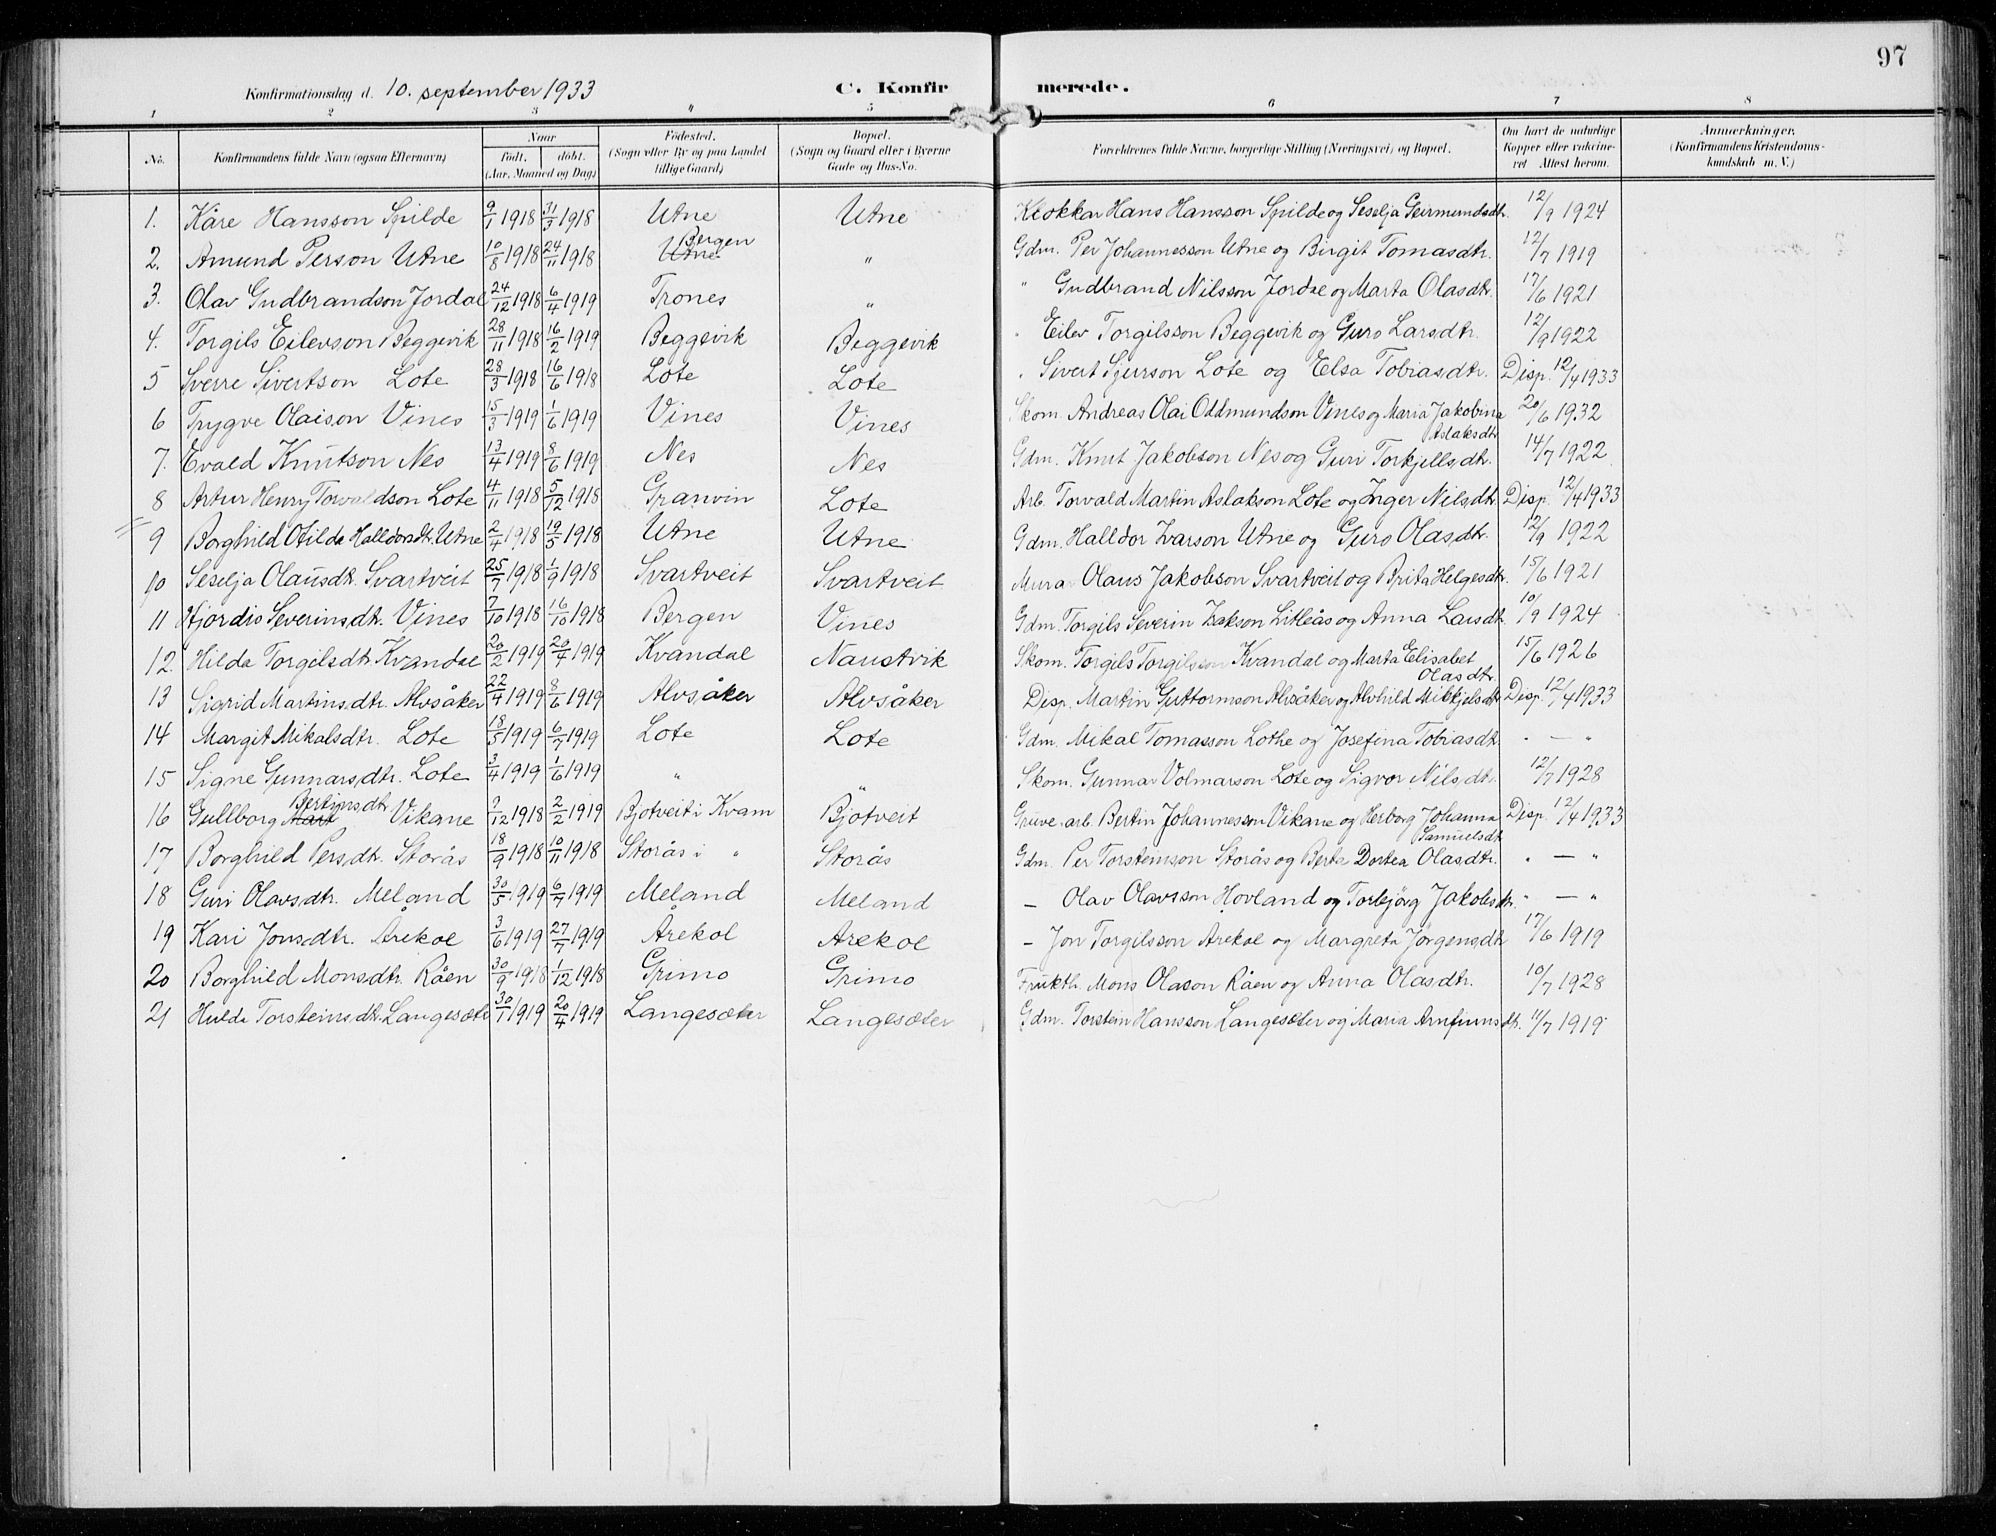 97
Konfirmationsdag d. 10. september 1933 C. Konfirmerede.
1 2 3 4 5 6 7 8
No. Konfirmandens fulde Navn (ogsaa Efternavn) Naar født. døbt. (Aar, Maaned og Dag) Fødested. (Sogn eller By og paa Landet tillige Gaard) Bopæl. (Sogn og Gaard eller i Byerne Gade og Hus-No. Forældrenes fulde Navne, borgerlige Stilling (Næringsvei) og Bopæl. Om havt de naturlige Kopper eller vaccineret Attest herom. Anmærkninger. (Konfirmandens Kristendomskundskab m. V.)
1. Kåre Hansson Spilde 9/1 1918 31/3 1918 Utne Utne Klokkar Hans Hansson Spilde og Seselja Geirmundsdtr. 12/9 1924
2. Amund Person Utne 10/8 1918 24/11 1918 Utne Bergen " Gdm. Per Johannesson Utne og Birgit Tomasdtr. 12/7 1919
3. Olav Gudbrandson Jordal 24/12 1918 6/4 1919 Trones " " Gudbrand Nilsson Jordal og Marta Olasdtr. 17/6 1921
4. Torgils Eilevson Beggevik 28/11 1918 16/2 1919 Beggevik Beggevik " Eilev Torgilsson Beggevik og Guro Larsdtr. 12/9 1922
5 Sverre Sivertson Lote 28/3 1918 16/6 1918 Lote Lote " Sivert Sjurson Lote og Elsa Tobiasdtr. Disp. 12/4 1933
6 Trygve Olaison Vines 15/3 1919 1/6 1919 Vines Vines Skom. Andreas Olai Oddmundson Vines og Maria Jakobina Aslaksdtr 20/6 1932
7. Evald Knutson Nes 13/4 1919 8/6 1919 Nes Nes Gdm. Knut Jakobson Nes og Guri Torkjellsdtr. 14/7 1922
8 Artur Henry Torvaldson Lote 4/11 1918 5/12 1918 Granvin Lote Arb. Torvald Martin Aslakson Lote og Inger Nilsdtr. Disp. 12/4 1933
9 Borghild Otilda Halldorsdtr. Utne 2/4 1918 19/5 1918 Utne Utne Gdm. Halldor Ivarson Utne og Guro Olasdtr. 12/9 1922
10 Seselja Olausdt. Svartveit 25/7 1918 1/9 1918 Svartveit Svartveit Murar Olaus Jakobson Svartveit og Brita Helgesdtr. 15/6 1921
11 Hjørdis Severinsdtr. Vines 7/10 1918 16/10 1918 Bergen Vines Gdm. Torgils Severin Isakson Litleås og Anna Larsdt. 10/9 1924
12. Hilda Torgilsdtr. Kvandal 20/2 1919 20/4 1919 Kvandal Naustvik Skom. Torgils Torgilsson Kvandal og Marta Elisabet Olasdtr. 15/6 1926
13 Sigrid Martinsdtr. Alvsåker 22/4 1919 8/6 1919 Alvsåker Alvsåker Disp. Martin Guttormson Alvsåker og Alvhild Mikkjelsdtr Disp. 12/4 1933
14 Margit Mikalsdtr. Lote 18/5 1919 6/7 1919 Lote Lote Gdm. Mikal Tomasson Lothe og Josefina Tobiasdt. " — "
15 Signe Gunnarsdtr. Lote 3/4 1919 1/6 1919 " " Skom. Gunnar Volmarson Lote og Sigvor Nilsdt. 12/7 1928
16 Gullborg Bertinsdtr Vikane 7/12 1918 2/2 1919 Bjotveit i Kvam Bjotveit Gruve.arb. Bertin Johannesson Vikane og Herborg Johanna Samuelsdt. Disp. 12/4 1933
17 Borghild Persdtr. Storås 18/9 1918 10/11 1918 Storås i " Storås Gdm. Per Torsteinson Storås og Berta Dortea Olasdtr. " — "
18 Guri Olavsdtr. Meland 30/5 1919 6/7 1919 Meland Meland — Olav Olavsson Hovland og Torbjörg Jakobsdtr. " — "
19 Kari Jonsdtr. Årekol 3/6 1919 27/7 1919 Årekol Årekol — Jon Torgilsson Årekol og Margreta Jørgensdtr 17/6 1919
20 Borghild Monsdtr. Råen 30/9 1918 1/12 1918 Grimo Grimo Frukth. Mons Olason Råen og Anna Olasdtr. 10/7 1928
21 Hulda Torsteinsdtr. Langesæter 30/1 1919 20/4 1919 Langesæter Langesæter Gdm. Torstein Hansson Langesæter og Maria Arnfinnsdtr. 11/7 1919